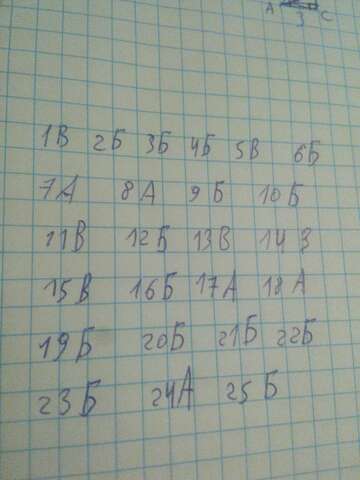 А
3 С
1В 2Б 3Б 4Б 5В 6Б
7А 8А 9Б 10Б
11В 12Б 13В 14 3
15В 16Б 17А 18А
19Б 20Б 21Б 22Б
23Б 24А 25Б